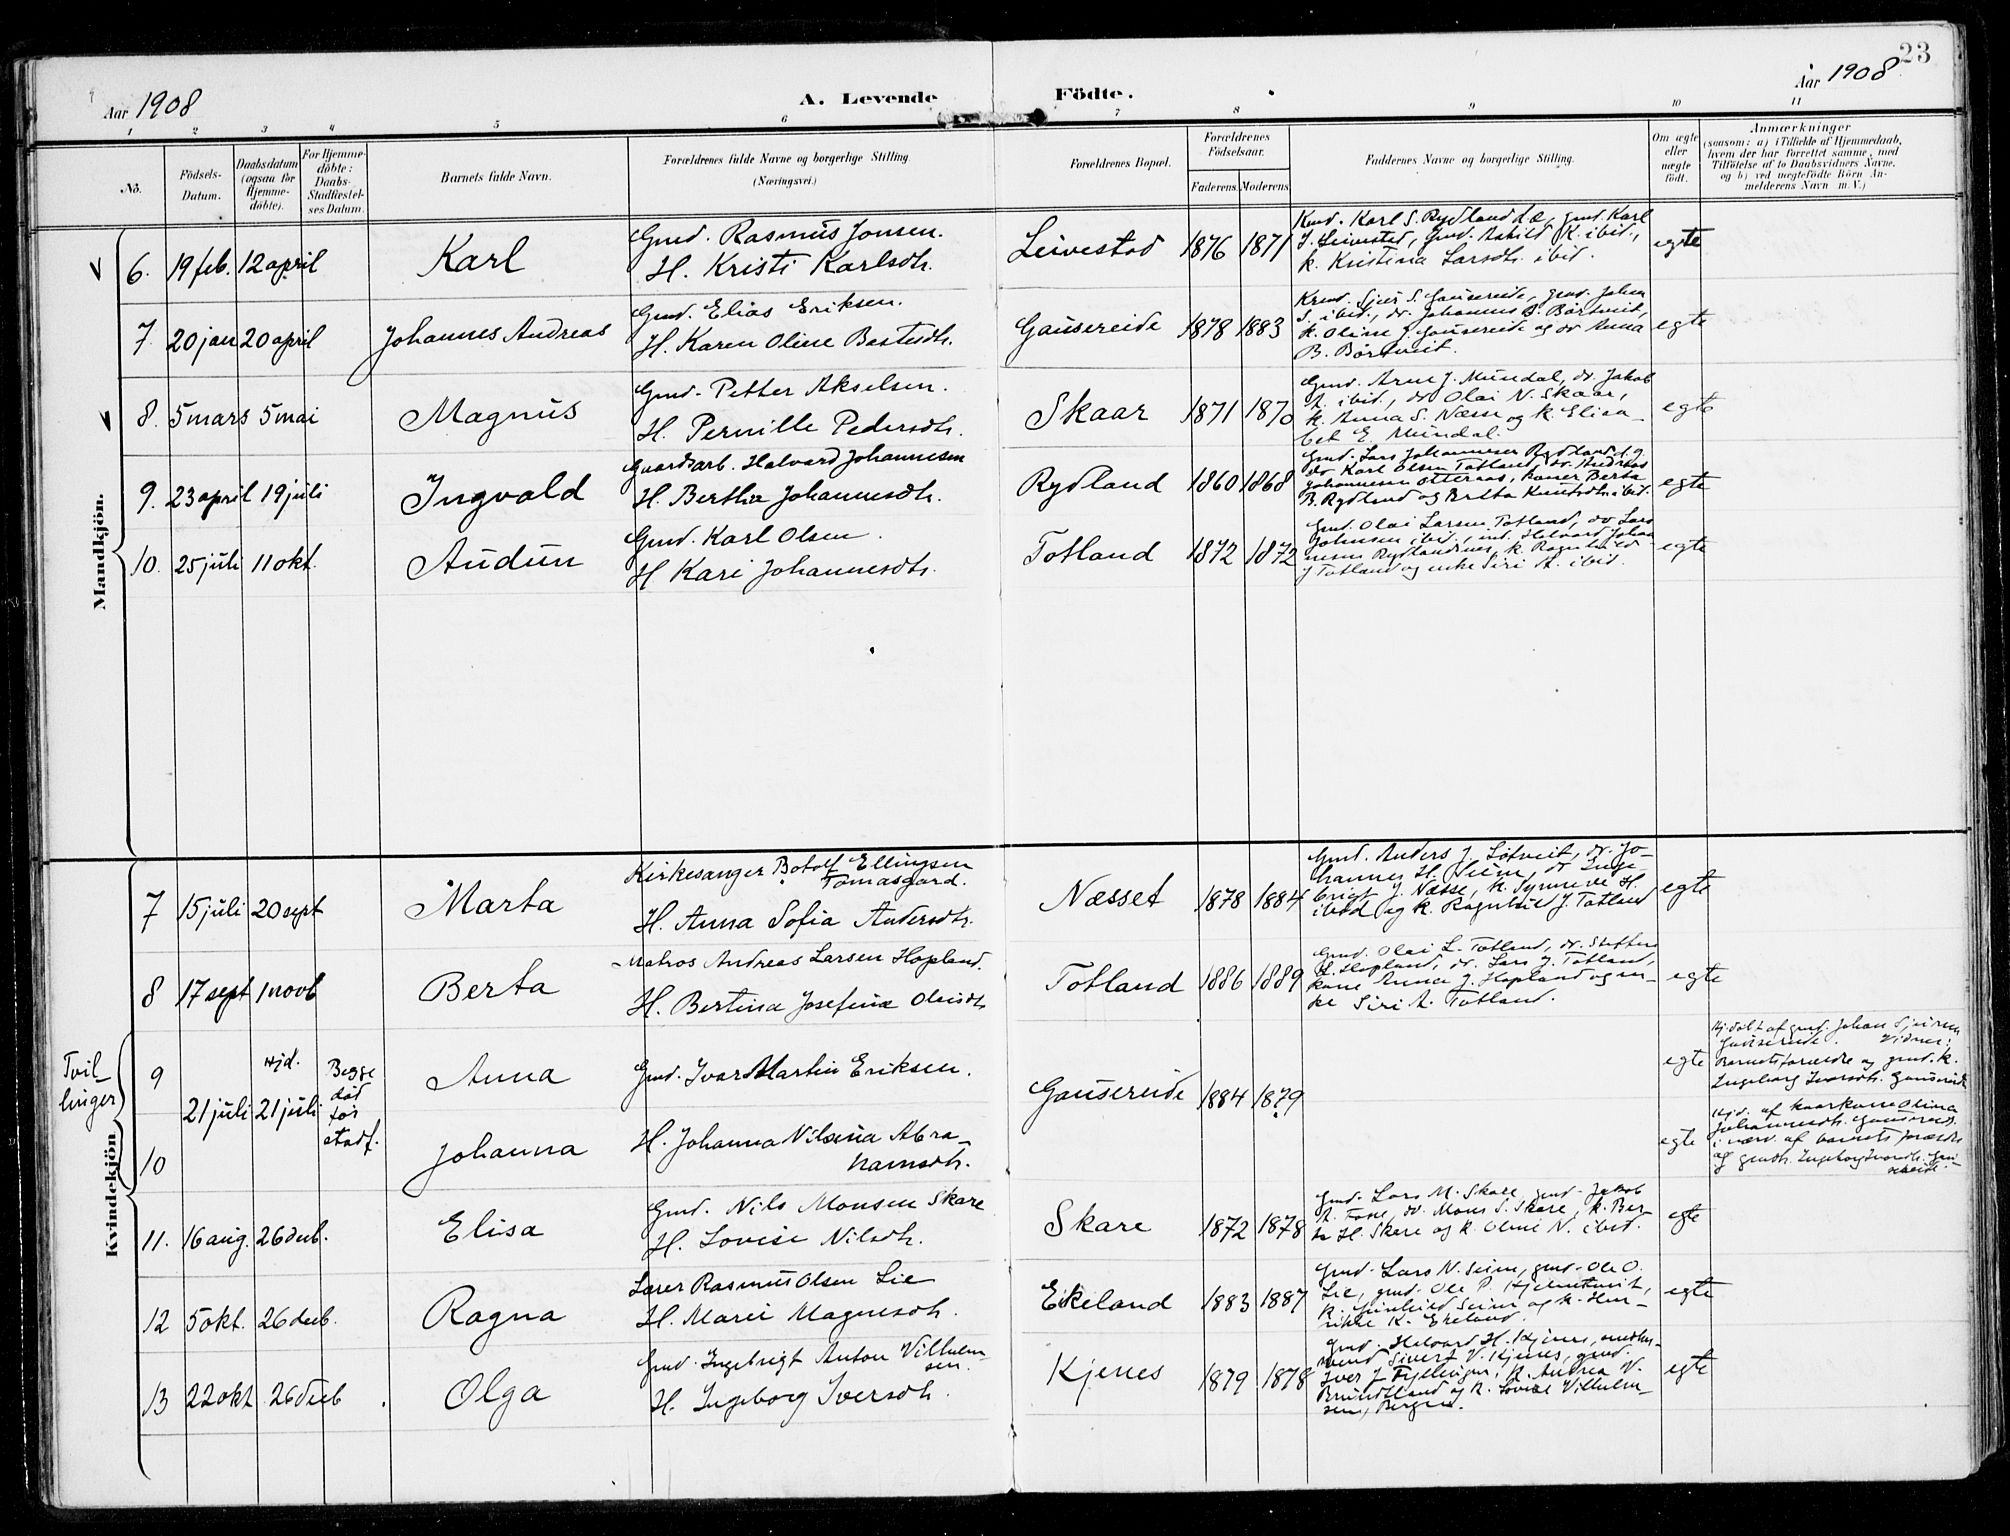 23
Aar 1908
A. Levende Födte.
Aar 1908
1 2 3 4 5 6 7 8 9 10 11
No.
Födsels-Datum.
Daabsdatum (ogsaa for Hjemme-döbte).
For Hjemme-döbte: Daabs-Stadfæstel-ses Datum.
Barnets fulde Navn.
Forældrenes fulde Navne og borgerlige Stilling.
(Næringsvei.)
Forældrenes Bopæl.
Forældrenes Födselsaar.
Faderens. Moderens.
Faddernes Navne og borgerlige Stilling.
Om ægte eller uægte født.
Anmærkninger
(saasom: a) i Tilfælde af Hjemmedaab, hvem der har forrettet samme, med Tilföielse af to Daabsvidners Navne, og b) ved uægtefödte Börn An-melderens Navn m. V.)
Mandkjön.
6. 19 feb. 12 april Karl
Gmd. Rasmus Jonsen.
H. Kristi Karlsdtr.
Leivestad 1876 1871
Gmd. Karl S. Rydland d.e., gmd. Karl
J. Leivestad, gmd. Askild K. ibid.,
k. Kristina Larsdtr. ibid.
egte
7. 20 jan 20 april Johannes Andreas
Gmd. Elias Eriksen.
H. Karen Oline Bastesdtr.
Gausereide 1878 1883
Kmd. Sjur S. Gausereide, gmd. Johan
S. ibid., dr. Johannes B. Børtveit,
k. Oline J. Gausereide og dr Anna
B. Børtveit.
egte
8. 5 mars 5 mai Magnus
Gmd. Petter Akselsen.
H. Pernille Pedersdtr.
Skaar 1871 1870
Gmd. Arne J. Mundal, dr. Jakob
A. ibid., dr Olai N. Skaar,
k. Anna S. Næsse og k. Elisa-
bet E. Mundal.
egte
9. 23 april 19 juli Ingvald
Gaardsarb. Halvard Johannesen
H. Bertha Johannesdtr.
Rydland 1860 1868
Gmd. Lars Johannesen Rydland d.y.
dr Karl Olsen Totland, dr. Andreas
Johannesen Otteraas, koner Berta
B. Rydland og Brita Knutsdtr ibid.
egte
10. 25 juli 11 okt. Audun
Gmd. Karl Olsen
H Kari Johannesdtr.
Totland 1872 1872
Gmd. Olai Larsen Totland, dr Lars
Johnsen ibid., ind. Halvard Johan
nesen Rydlandnes, k. Ragnhild
J Totland og enke Siri A. ibid.
egte
7 15 juli 20 sept Marta
Kirkesanger Botolf Ellingsen
Tomasgard.
H. Anna Sofia Andersdtr.
Næsset 1878 1884
Gmd. Anders J. Søtveit, dr. Jo-
hannes H. Seim, dr Inge
brigt J. Næsse, k. Synneve H.
ibid og k. Ragnhild J. Totland
egte
8 17 sept 1 novb Berta
Matros Andreas Larsen Hopland.
H. Bertina Josefina Olsdtr
Totland 1886 1889
Gmd. Olai L. Totland, dr. Steffen
L. Hopland, dr. Lars J. Totland,
kone Anna J. Hopland og en-
ke Siri A. Totland.
egte
Tvil-
linger
9 Hjd. 21 juli 21 juli
Begge
død
før
stadf.
Anna
Gmd. Ivar Martin Eriksen.
Gausereide 1884 1879
egte
Hj.døbt af gmd. Johan Sjursen
Gausereide. Vidner:
Barnets foreldre og gmd. k.
Ingeborg Ivarsdtr. Gausereide
Kvindekjön.
10 Johanna
H. Johanna Nilsina Abra-
hamsdtr.
egte
Hjd. af kaarkone Olina
Johannesdtr. Gausereide
i nærv. af barnets foreldre
og gmdk. Ingeborg Ivarsdtr. Gau-
sereide.
11. 16 aug. 26 decb. Elisa
Gmd. Nils Monsen Skare
H. Lovise Nilsdtr.
Skare 1872 1878
Gmd. Lars M. Skare, gmd. Jakob
A. Fosse, dr. Mons S. Skare, k. Ber-
ta H. Skare og k. Oline N. ibid.
egte
12 5 okt. 26 decb. Ragna
Lærer Rasmus Olsen Lie
H. Marie Magnesdtr.
Eikeland 1883 1887
Gmd. Lars N. Seim, gmd. Ole O.
Lie, gmd. Ole P. Hjelmtveit,
k. Gunhild Seim og k. Hen-
rikke K. Ekeland.
egte
13 22 okt 26 decb Olga
Gmd. Ingebrigt Anton Vilhelm-
sen.
H. Ingeborg Iversdtr.
Kjenes 1879 1878
Gmd. Halvard H. Kjenes,
Sivert V. Kjenes, gmd.
Iver J Fyllingen, k. Andrea V.
Brundtland og k. Lovise Vilhelm-
sen, Bergen.
egte